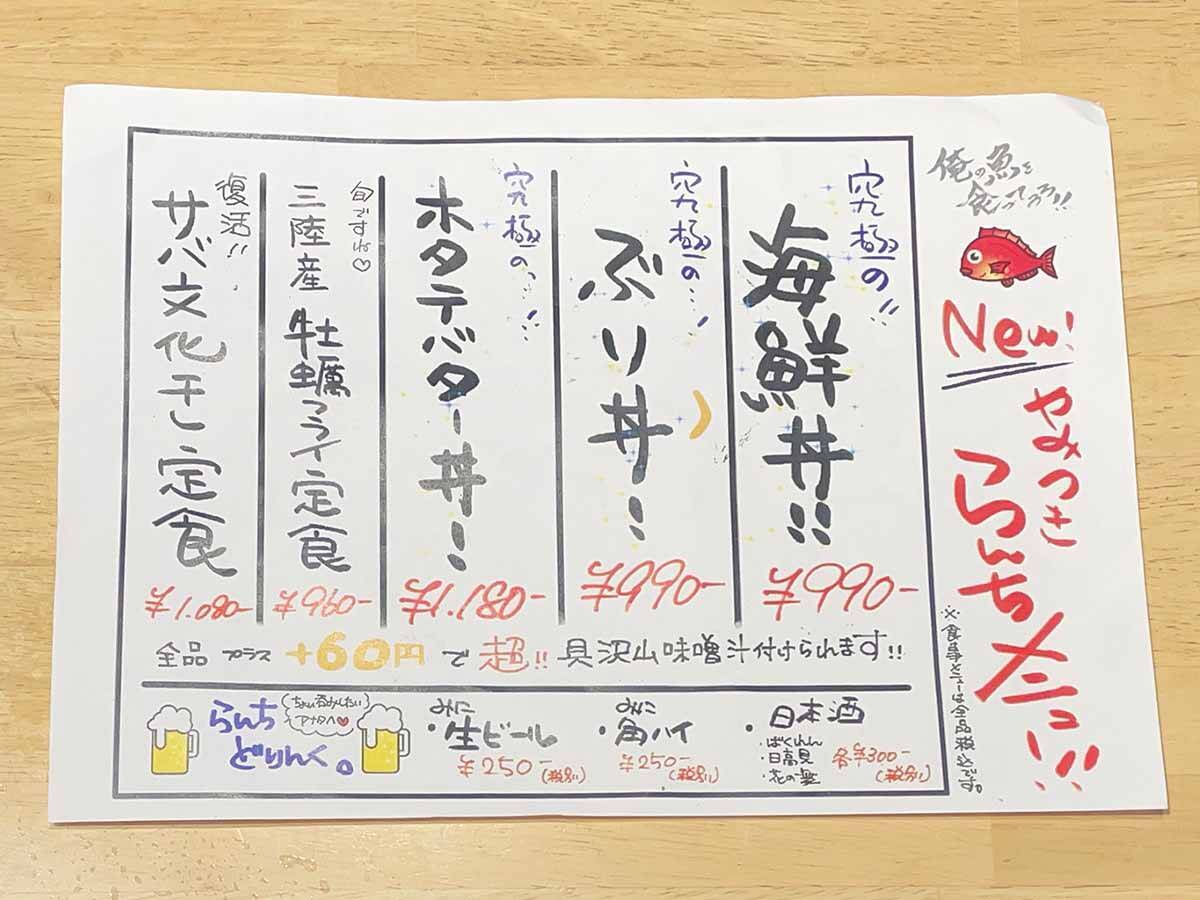 俺の魚を
食ってろ!!
New!
やみつき
らんちメニュー!!
※食事メニューは全品税込です。
究極の!!
海鮮丼!!
¥990-
究極の…!
ぶり丼!
¥990-
究極の…!!
ホタテバター丼!
¥1,180-
旬ですね♡
三陸産 牡蠣フライ定食
¥960-
復活!!
サバ文化干し定食
¥1,080-
全品 プラス +60円で超!! 具沢山味噌汁付けられます!!
らんち
どりんく。
(ちょい呑みしたい
アナタへ♥)
みに
・生ビール
¥250-(税別)
みに
・角ハイ
¥250-(税別)
・日本酒
・ばくれん
・日高見
・花の舞
各¥300-
(税別)